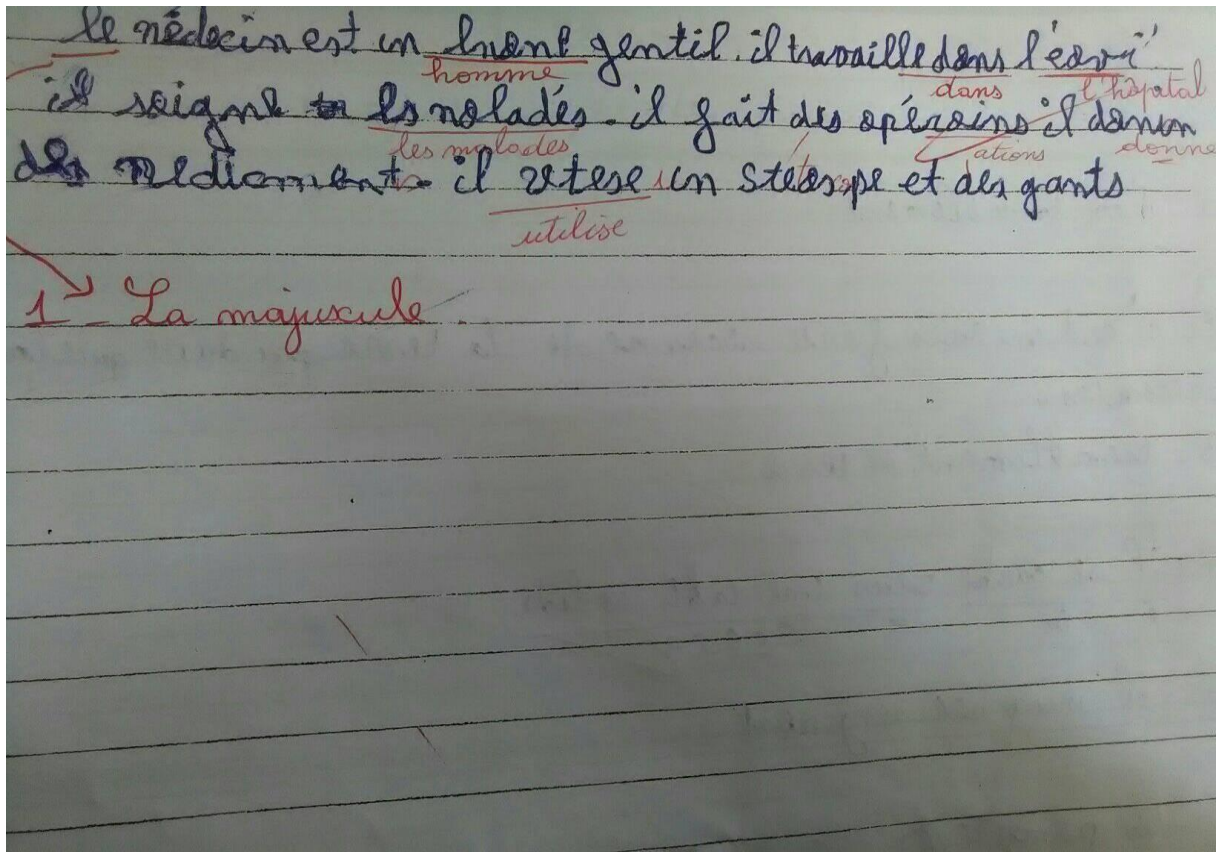 le nédecin est un hnene gentil. il travaille dans l'éarvi
homme dans l'hôpatal
il soigne les noladés. il fait des opéroins il donnn
les malades ations donne
des mediament. il utese un steorpe et des gants
utilise
1 - La majuscule.